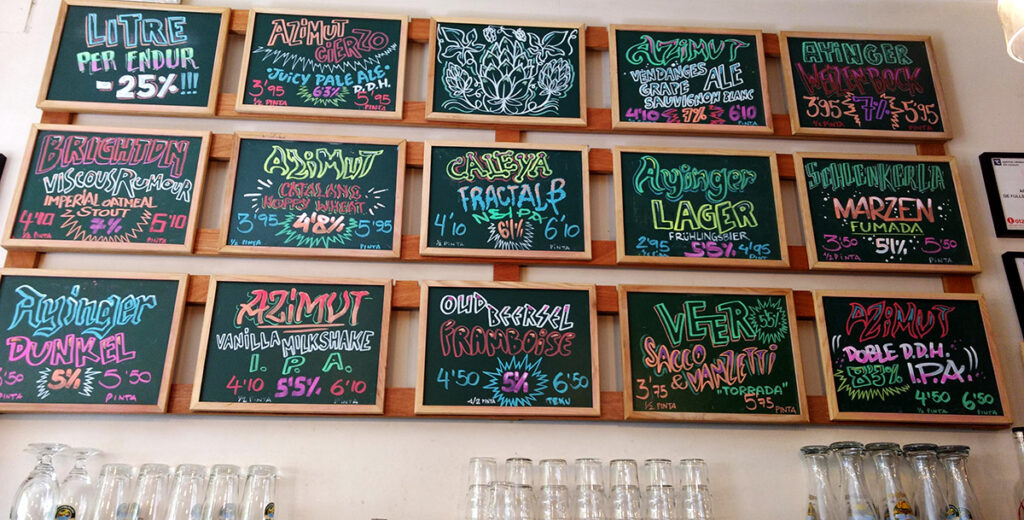 LITRE
PER ENDUR
- 25% !!!
AZIMUT
CIERZO
"JUICY PALE ALE"
D.D.H.
3'95 6'3% 5'95
½ PINTA PINTA
AZIMUT
"VENDANGES
GRAPE ALE
SAUVIGNON BLANC
4'10 7% 6'10
PINTA
AYINGER
WEIZENBOCK
3'95 7'1% 5'95
½ PINTA PINTA
BRIGHTON
VISCOUS RUMOUR
IMPERIAL OATMEAL
STOUT
4'10 7% 6'10
½ PINTA PINTA
AZIMUT
CATALANS
HOPPY WHEAT
3'95 4'8% 5'95
½ PINTA PINTA
CALEYA
FRACTAL B
NEIPA
4'10 6'1% 6'10
½ PINTA PINTA
Ayinger
LAGER
FRÜHLINGSBIER
2'95 5'5% 4'95
½ PINTA PINTA
SCHLENKERLA
MARZEN
FUMADA
3'50 5'1% 5'50
½ PINTA PINTA
Ayinger
DUNKEL
3'50 5% 5'50
PINTA PINTA
AZIMUT
VANILLA MILKSHAKE
I.P.A.
4'10 5'5% 6'10
½ PINTA PINTA
OUD BEERSEL
FRAMBOISE
4'50 5% 6'50
½ PINTA TEKU
VEER 5'5%
SACCO
& VANZETTI
"TORRADA"
3'75 5'75
½ PINTA PINTA
AZIMUT
"DOBLE D.D.H.
I.P.A."
8'5%
4'50 6'50
½ PINTA PINTA